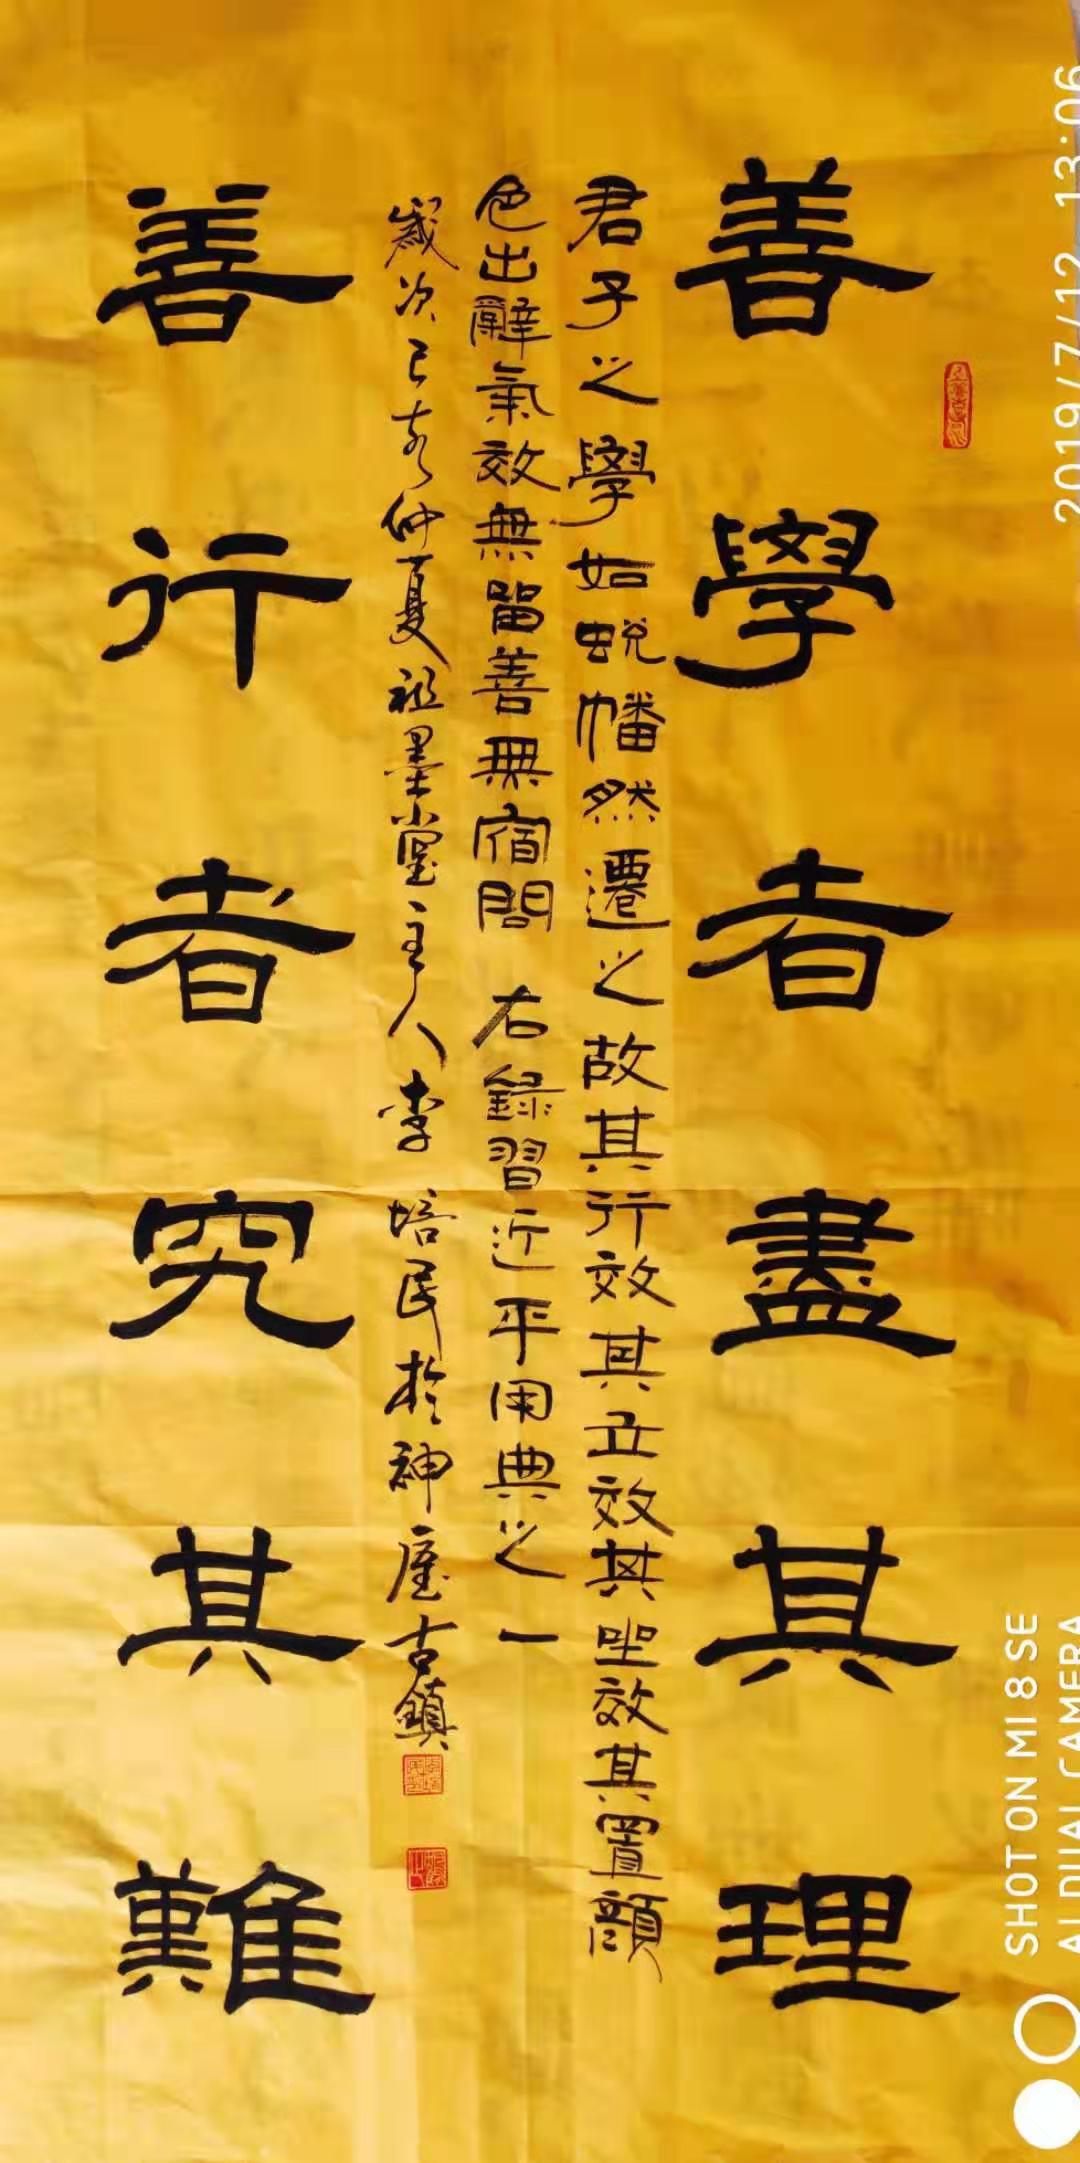 善學者盡其理
君子之學如蛻幡然遷之故其行效其立效其坐效其置顔
色出辭氣效無留善無宿問 右錄習近平用典之一
歲次己亥仲夏祖墨堂主人李培民於神垕古鎮
善行者究其難
2019/7/12 13:06
SHOT ON MI 8 SE
AI DUAL CAMERA